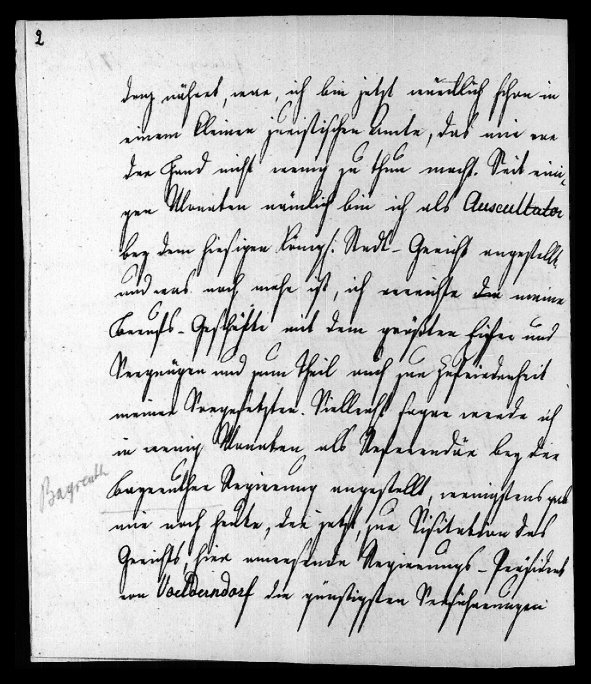 2
ich bin jetzt wirklich schon in
einem kleinen juristischen Amte, das mir vor
der Hand nicht wenig zu thun macht. Seit eini-
gen Monaten nämlich bin ich als Auscultator
bey dem hiesigen Königl. Stadt-Gericht angestellt
und was noch mehr ist, ich verrichte die meine
Berufs-Geschäfte mit dem größten Eifer und
Vergnügen und zum Theil auch zur Zufriedenheit
meiner Vorgesetzten. Vielleicht sogar werde ich
in wenig Monaten als Referendär bey der
Bayreuth
Bayreuther Regierung angestellt, wenigstens gab
mir noch heute, der jetzt, zur Visitation des
Gerichts, hier anwesende Regierungs-Präsident
von Voelderndorf die günstigsten Versicherungen